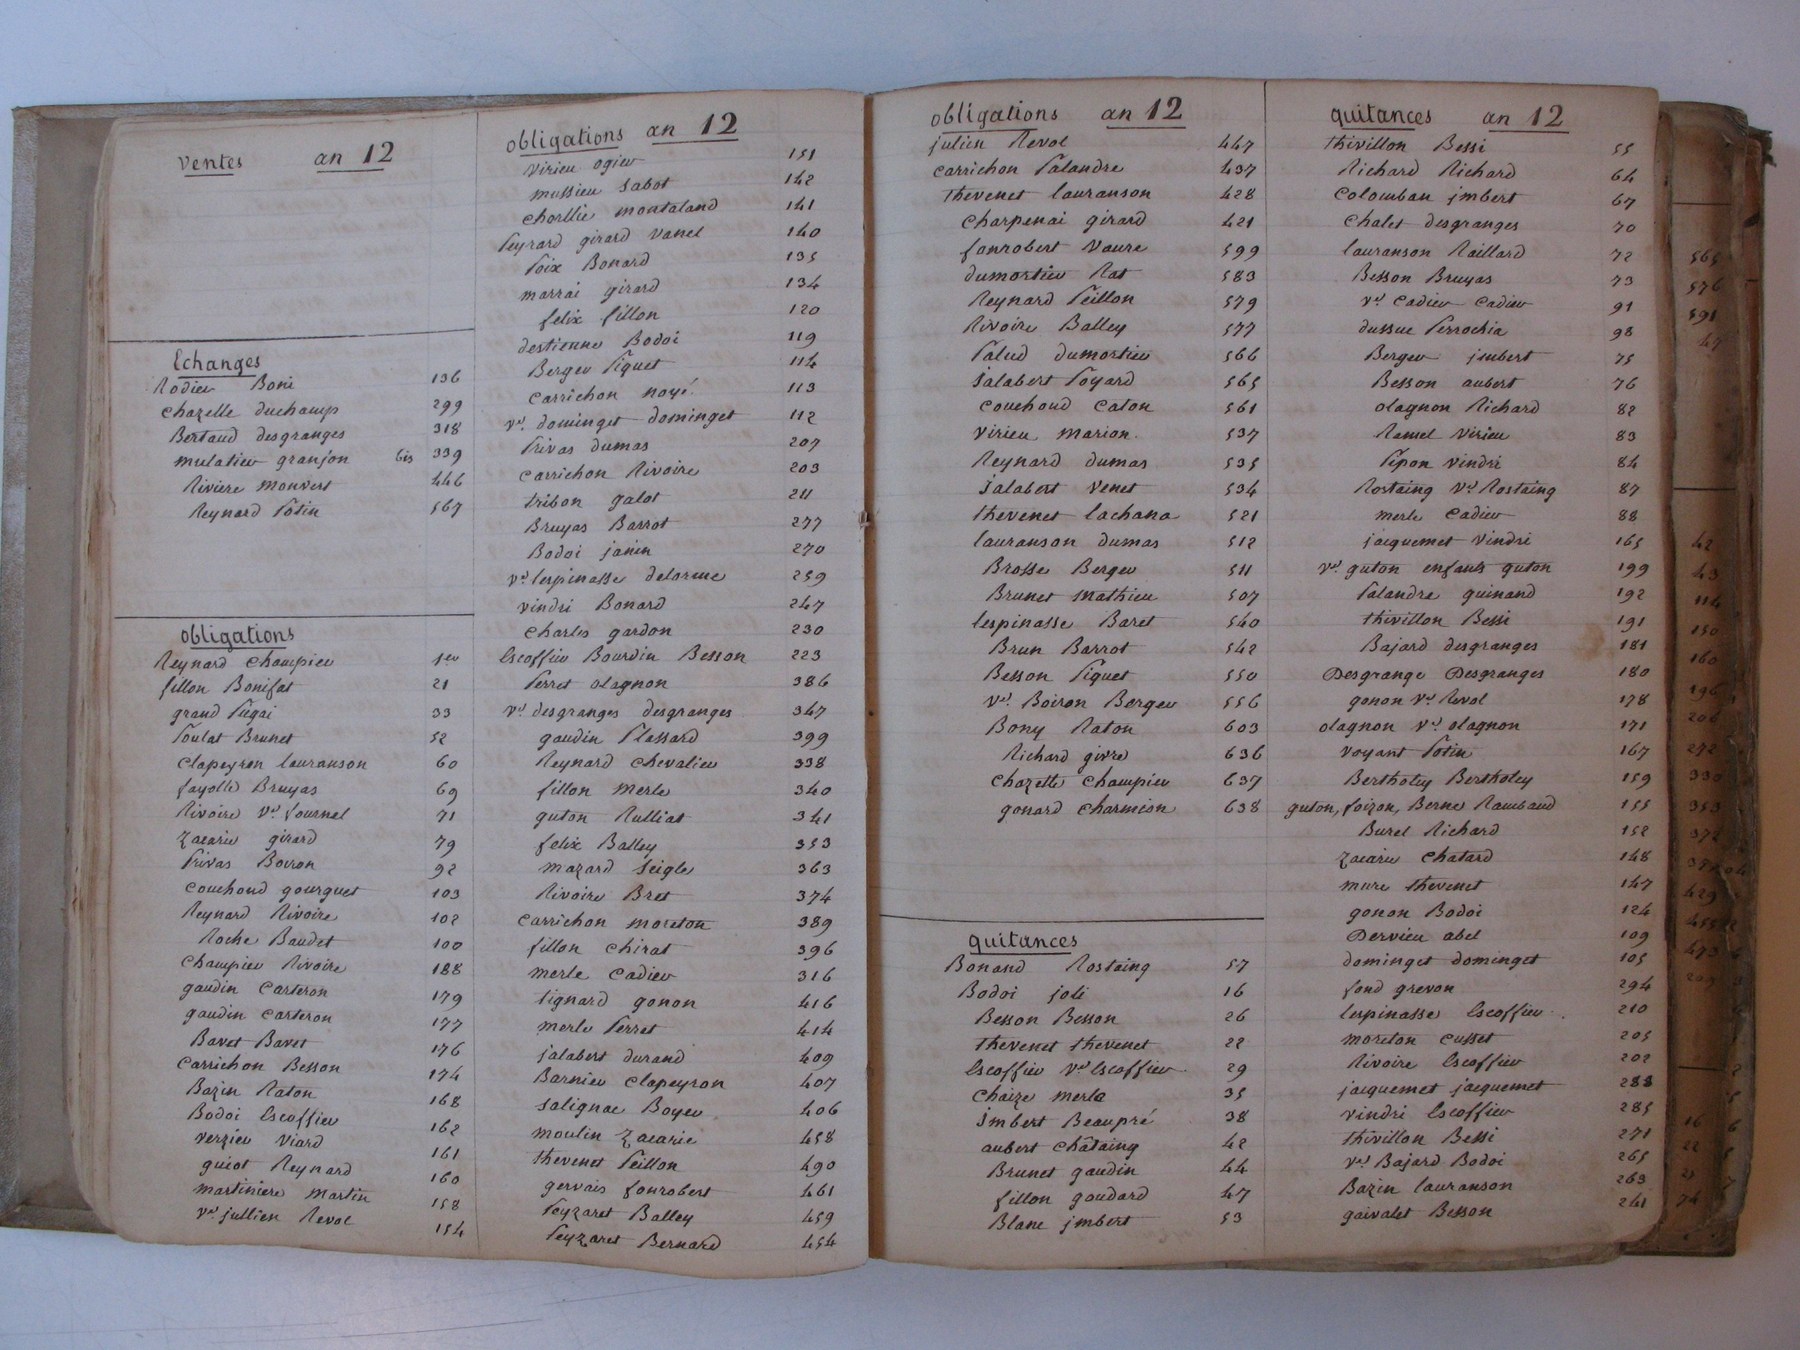 Ventes an 12
Echanges
Rodier Boni 136
Chazelle duchamp 299
Bertaud desgranges 318
mulatier granjon bis 339
Riviere monvert 446
Reynard Potin 567
obligations
Reynard Champier 1er
fillon Bonifat 21
grand Pugai 33
Poulat Brunet 52
Clapeyron lauranson 60
fayolle Bruyas 69
Rivoire Ve fournel 71
Zacarie girard 79
Privas Boiron 92
Couchoud gourguet 103
Reynard Rivoire 102
Roche Baudet 100
Champier Rivoire 188
gaudin Carteron 179
gaudin Carteron 177
Bavet Bavet 176
Carrichon Besson 174
Bazin Raton 168
Bodoi Escoffier 162
verzier Viard 161
guiot Reynard 160
martiniere martin 158
Ve jullien Revol 154
obligations an 12
Virieu ogier 151
mussieu Sabot 142
Chorllie montaland 141
Peyrard girard Vanel 140
Poix Bonard 135
marrai girard 134
felix fillon 120
destienne Bodoi 119
Berger Piquet 114
Carrichon noyé 113
Ve dominget dominget 112
Privas dumas 207
Carrichon Rivoire 203
tribon galot 211
Bruyas Barrot 277
Bodoi janin 270
Ve lespinasse delorme 259
vindri Bonard 247
Charles gardon 230
Escoffier Bourdin Besson 223
Perret olagnon 386
Ve desgranges desgranges 347
gaudin Plassard 399
Reynard Chevalier 338
fillon merle 340
guton Rulliat 341
felix Balley 353
mazard Seigle 363
Rivoire Bret 374
Carrichon moreton 389
fillon Chirat 396
merle Cadier 316
tignard gonon 416
merle Perret 414
jalabert durand 409
Barnier Clapeyron 407
Salignac Boyer 406
moulin Zacarie 458
thevenet Peillon 490
gervais fonrobert 461
Peyzaret Balley 459
Peyzaret Bernard 454
obligations an 12
julien Revol 447
Carrichon Palandre 437
thevenet lauranson 428
Charpenai girard 421
fonrobert Vaure 599
dumortier Rat 583
Reynard Peillon 579
Rivoire Balley 577
Palud dumortier 566
Jalabert Poyard 565
Couchoud Caton 561
Virieu marion 537
Reynard dumas 535
Jalabert Venet 534
thevenet lachana 521
lauranson dumas 512
Brosse Berger 511
Brunet mathieu 507
lespinasse Baret 540
Brun Barrot 542
Besson Piquet 550
Ve Boiron Berger 556
Bony Raton 603
Richard givre 636
Chazelle Champier 637
gonard Charmion 638
quitances
Bonand Rostaing 57
Bodoi joli 16
Besson Besson 26
thevenet thevenet 22
Escoffier Ve Escoffier 29
Chaize merla 35
imbert Beaupré 38
aubert Châtaing 42
Brunet gaudin 44
fillon goudard 47
Blanc jmbert 53
quitances an 12
thivillon Bessi 55
Richard Richard 64
Colomban jmbert 67
Chalet desgranges 70
lauranson Raillard 72
Besson Bruyas 73
Ve Cadier Cadier 91
dussuc Perrochia 98
Berger jmbert 75
Besson aubert 76
olagnon Richard 82
Ramel Virieu 83
Pipon vindri 84
Rostaing Ve Rostaing 87
merle Cadier 88
jacquemet vindri 165
Ve guton enfants guton 199
Palandre guinand 192
thivillon Bessi 191
Bajard desgranges 181
Desgrange Desgranges 180
gonon Ve Revol 178
olagnon Ve olagnon 171
voyant Potin 167
Bertholey Bertholey 159
guton, foizon, Berne Rambaud 155
Burel Richard 152
Zacarie Chatard 148
mure thevenet 147
gonon Bodoi 124
Dervieu abel 109
dominget dominget 105
fond grevon 294
lespinasse Escoffier 210
moreton Cusset 205
Rivoire Escoffier 202
jacquemet jacquemet 288
vindri Escoffier 285
thivillon Bessi 271
Ve Bajard Bodoi 265
Bazin lauranson 263
gaivalet Besson 241
565
576
591
47
42
43
114
150
160
196
206
272
330
353
372
429
455
473
16
22
74